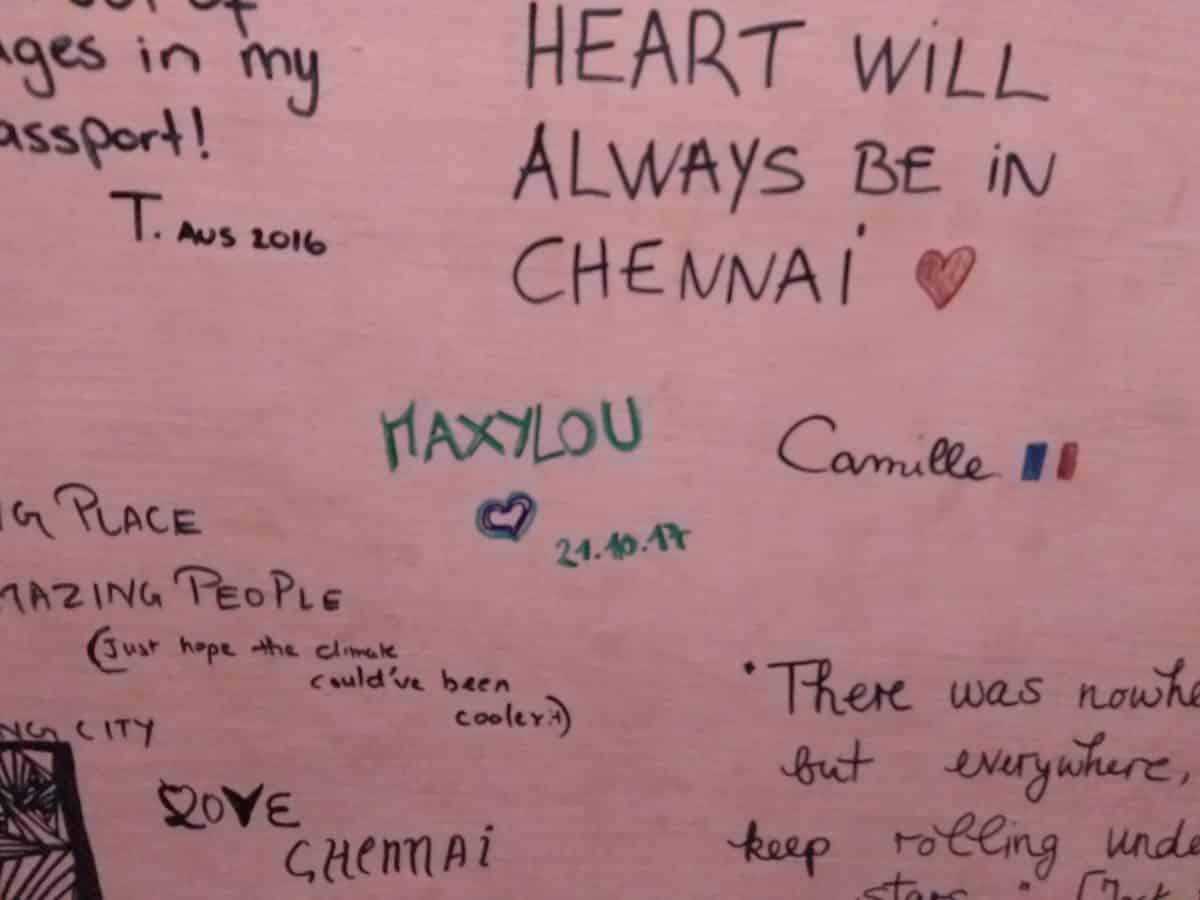 ages in my
assport!
T. AUS 2016
HEART WiLL
ALWAYS BE iN
CHENNAi
MAXYLOU
21.10.17
Camille
G PLACE
MAZING PEOPLE
(Just hope the climate
could've been
cooler:))
NG CITY
LOVE
CHEnnAi
"There was nowhe
but everywhere,
keep rolling unde
stars." (Jack